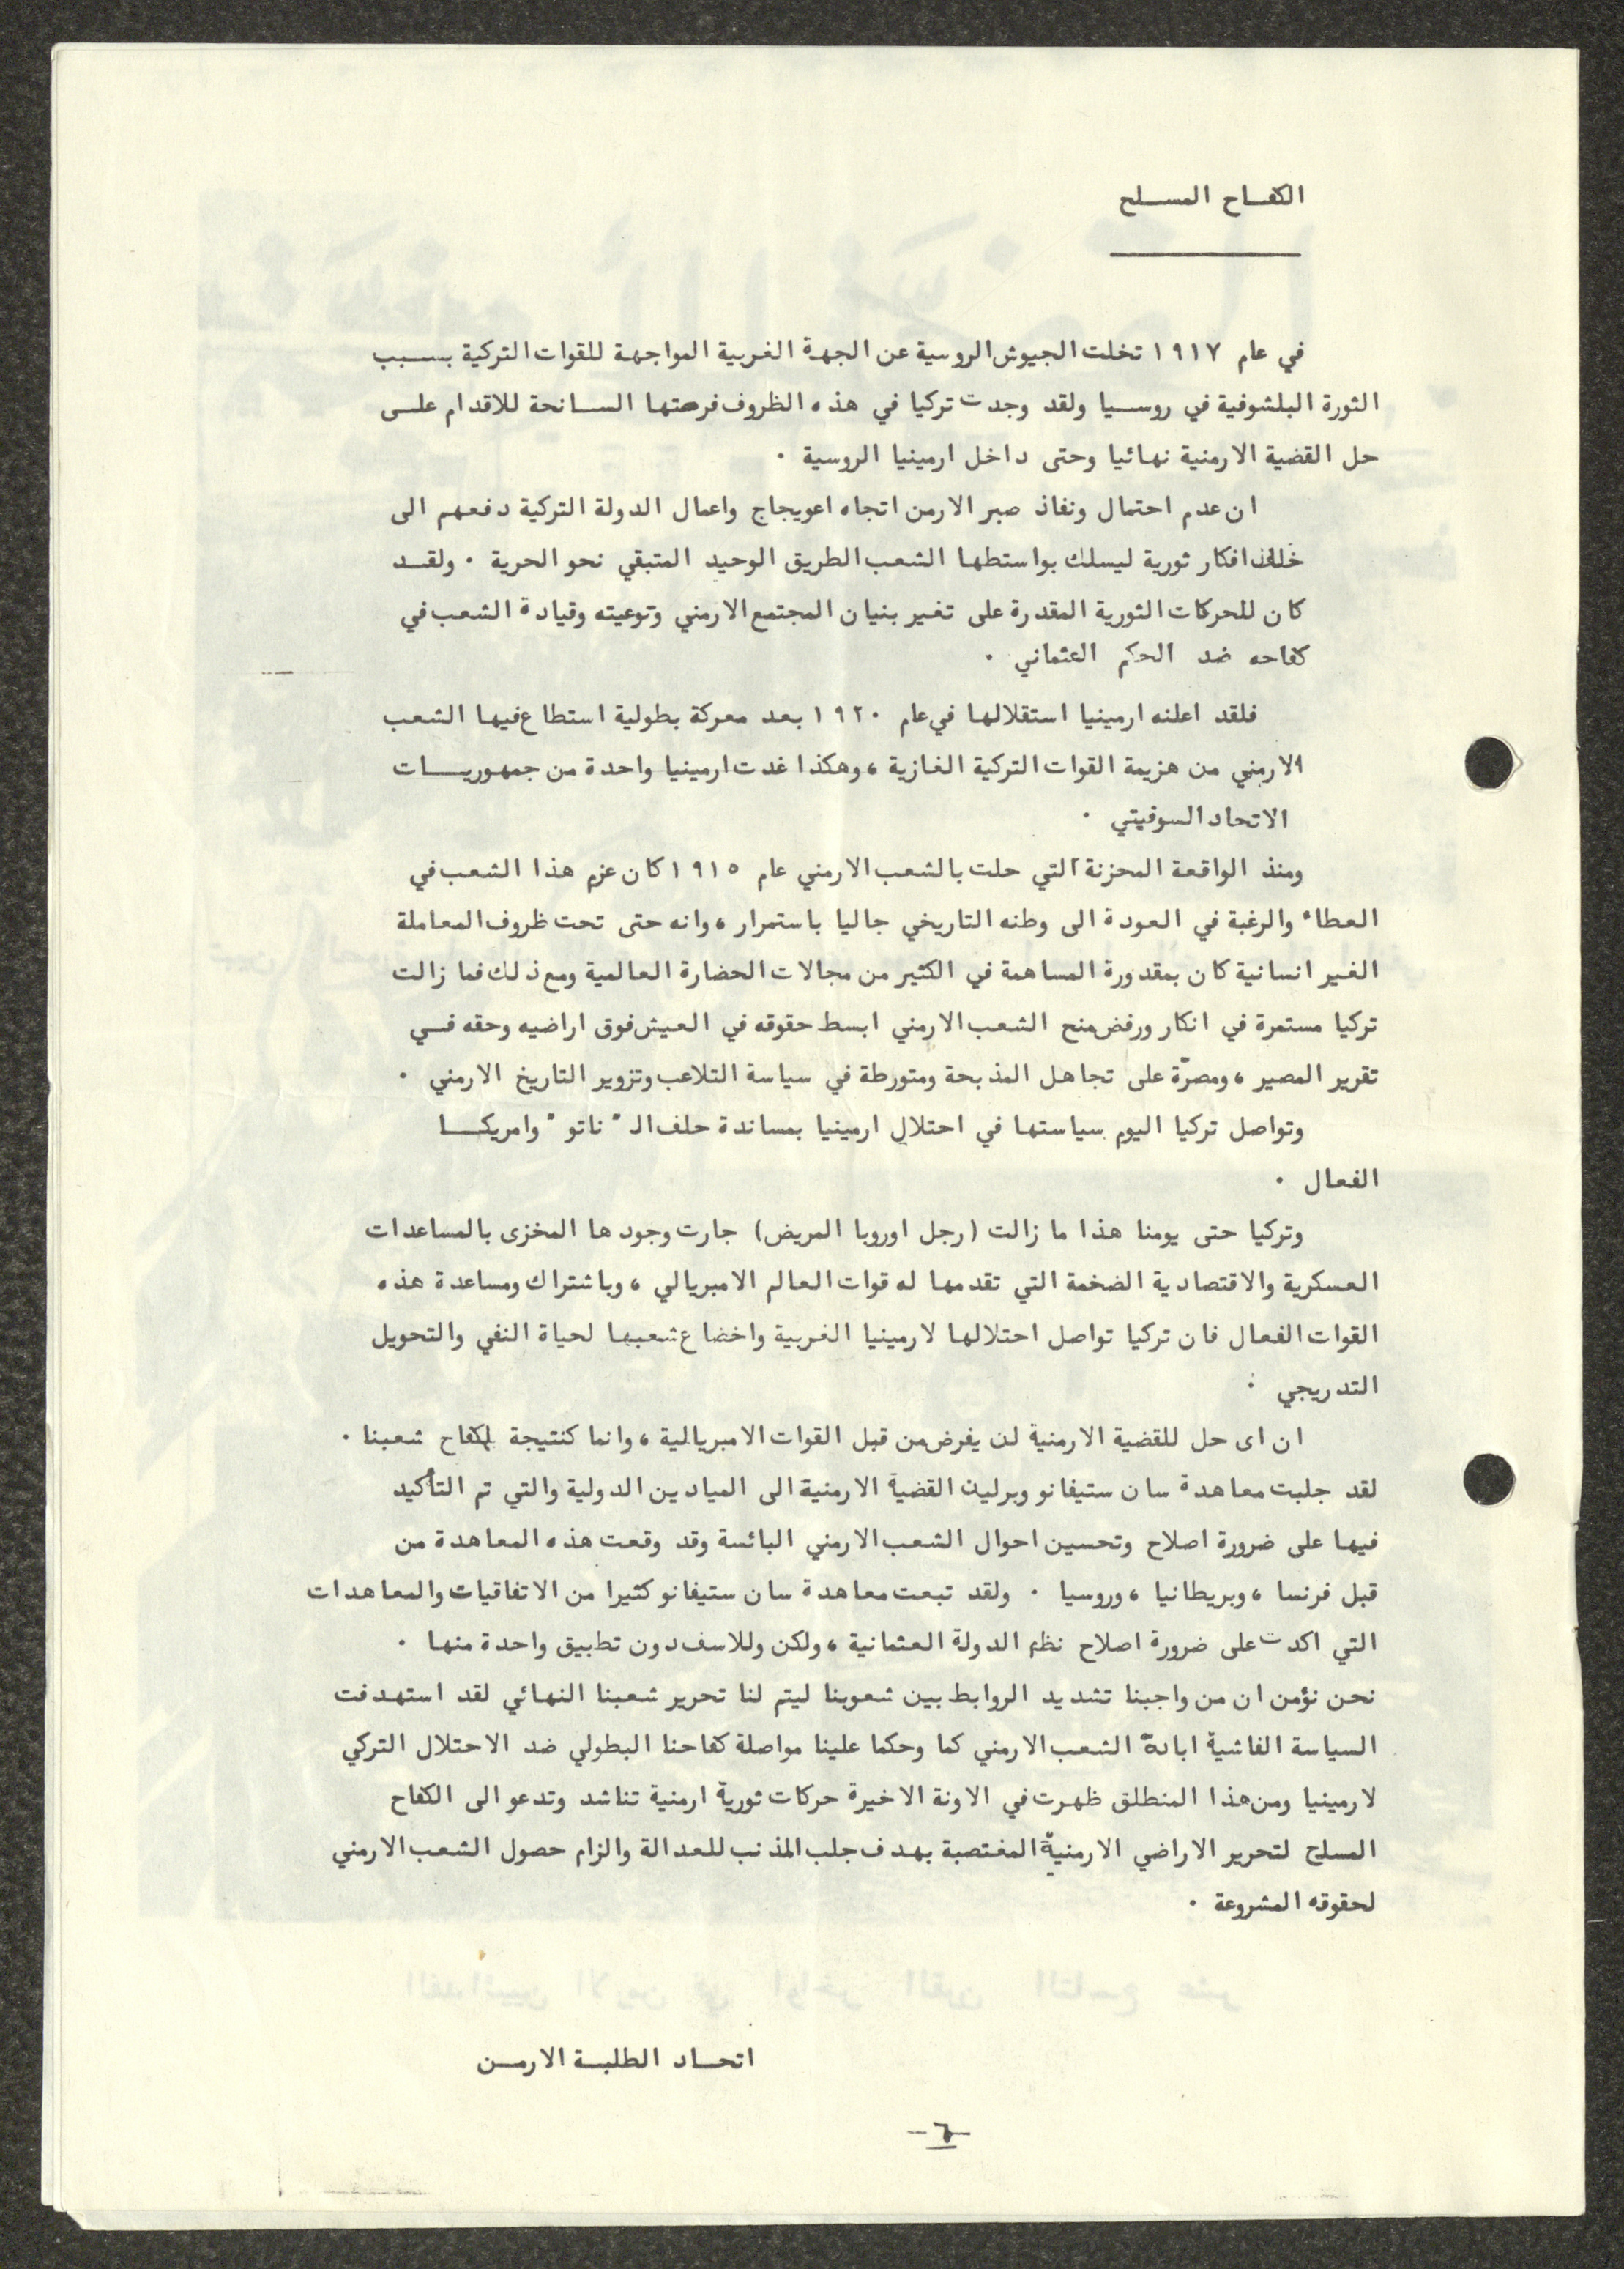 الكفاح المسلح
في عام ١٩١٧ تخلت الجيوش الروسية عن الجهة الغربية المواجهة للقوات التركية بسبب
الثورة البلشوفية في روسيا ولقد وجدت تركيا في هذه الظروف فرصتها السانحة للاقدام على
حل القضية الارمنية نهائيا وحتى داخل ارمينيا الروسية ٠
ان عدم احتمال ونفاذ صبر الارمن اتجاه اعويجاج واعمال الدولة التركية دفعهم الى
افكار ثورية ليسلك بواستطها الشعب الطريق الوحيد المتبقي نحو الحرية ٠ ولقد
كان للحركات الثورية المقدرة على تغير بنيان المجتمع الارمني وتوعيته وقيادة الشعب في
كفاحه ضد الحكم العثماني ٠
فلقد اعلنه ارمينيا استقلالها في عام ١٩٢٠ بعد معركة بطولية استطاع فيها الشعب
الارمني من هزيمة القوات التركية الغازية ، وهكذا غدت ارمينيا واحدة من جمهوريات
الاتحاد السوفيتي ٠
ومنذ الواقعة المحزنة التي حلت بالشعب الارمني عام ١٩١٥ كان عزم هذا الشعب في
العطاء والرغبة في العودة الى وطنه التاريخي جاليا باستمرار ، وانه حتى تحت ظروف المعاملة
الغير انسانية كان بمقدورة المساهمة في الكثير من مجالات الحضارة العالمية ومع ذلك فما زالت
تركيا مستمرة في انكار ورفض منح الشعب الارمني ابسط حقوقه في العيش فوق اراضيه وحقه في
تقرير المصير ، ومصرّة على تجاهل المذبحة ومتورطة في سياسة التلاعب وتزوير التاريخ الارمني ٠
وتواصل تركيا اليوم سياستها في احتلال ارمينيا بمساندة حلف الـ " ناتو " وامريكا
الفعال ٠
وتركيا حتى يومنا هذا ما زالت (رجل اوروبا المريض) جارت وجودها المخزى بالمساعدات
العسكرية والاقتصادية الضخمة التي تقدمها له قوات العالم الامبريالي ، وباشتراك ومساعدة هذه
القوات الفعال فان تركيا تواصل احتلالها لارمينيا الغربية واخضاع شعبها لحياة النفي والتحويل
التدريجي ٠
ان اى حل للقضية الارمنية لن يفرض من قبل القوات الامبريالية ، وانما كنتيجة لكفاح شعبنا ٠
لقد جلبت معاهدة سان ستيفانو وبرلين القضية الارمنية الى الميادين الدولية والتي تم التأكيد
فيها على ضرورة اصلاح وتحسين احوال الشعب الارمني البائسة وقد وقعت هذه المعاهدة من
قبل فرنسا ، وبريطانيا ، وروسيا ٠ ولقد تبعت معاهدة سان ستيفانو كثيرا من الاتفاقيات والمعاهدات
التي اكدت على ضرورة اصلاح نظم الدولة العثمانية ، ولكن وللاسف دون تطبيق واحدة منها ٠
نحن نؤمن ان من واجبنا تشديد الروابط بين شعوبنا ليتم لنا تحرير شعبنا النهائي لقد استهدفت
السياسة الفاشية ابادة الشعب الارمني كما وحكما علينا مواصلة كفاحنا البطولي ضد الاحتلال التركي
لارمينيا ومن هذا المنطلق ظهرت في الاونة الاخيرة حركات ثورية ارمنية تناشد وتدعو الى الكفاح
المسلح لتحرير الاراضي الارمنية المغتصبة بهدف جلب المذنب للعدالة والزام حصول الشعب الارمني
لحقوقه المشروعة ٠
اتحاد الطلبة الارمن
-٦-